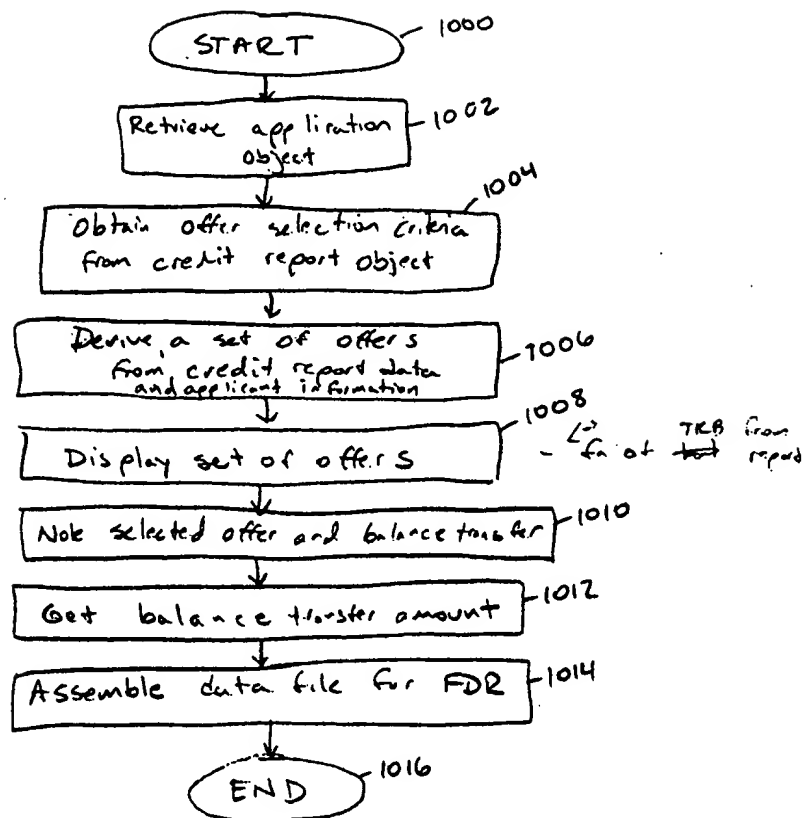 START
1000
Retrieve application
object
1002
1004
Obtain offer selection criteria
from credit report object
Derive a set of offers
from credit report data
and applicant information
1006
1008
Display set of offers
TRB from
of report
Note selected offer and balance transfer
1010
Get balance transfer amount
1012
Assemble data file for FDR
1014
END
1016